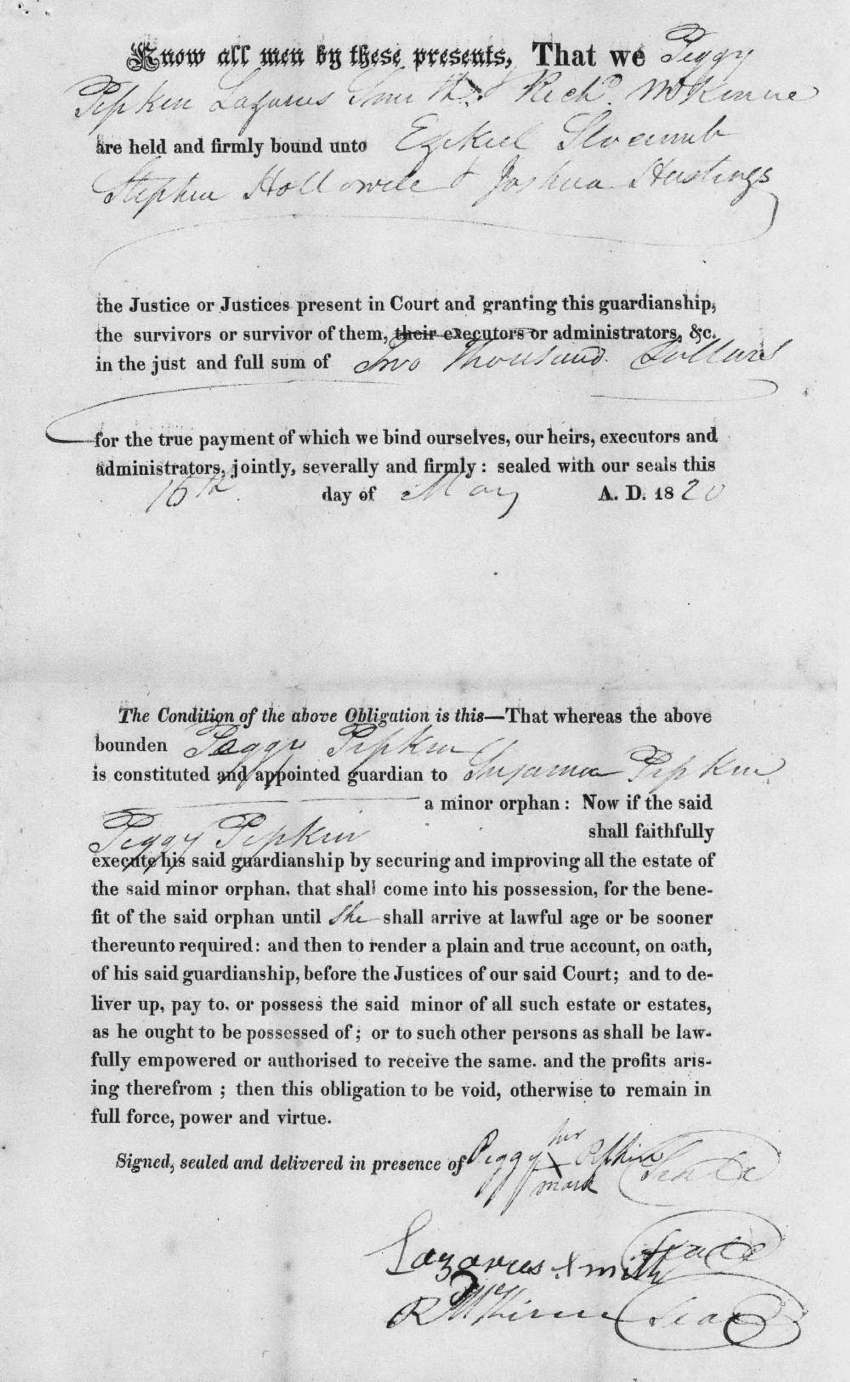 Know all men by these presents, That we Peggy
Pipkin Lazarus Smith & Richd. McKinne
are held and firmly bound unto Ezekiel Slocumb
Stephen Hollowell & Joshua Hastings
the Justice or Justices present in Court and granting this guardianship,
the survivors or survivor of them, their executors or administrators, &c.
in the just and full sum of Two Thousand Dollars
for the true payment of which we bind ourselves, our heirs, executors and
administrators, jointly, severally and firmly: sealed with our seals this
day of May A. D. 1820
The Condition of the above Obligation is this—That whereas the above
bounden Peggy Pipkin
is constituted and appointed guardian to Pipkin
a minor orphan: Now if the said
Peggy Pipkin shall faithfully
execute his said guardianship by securing and improving all the estate of
the said minor orphan, that shall come into his possession, for the bene-
fit of the said orphan until she shall arrive at lawful age or be sooner
thereunto required: and then to render a plain and true account, on oath,
of his said guardianship, before the Justices of our said Court; and to de-
liver up, pay to, or possess the said minor of all such estate or estates,
as he ought to be possessed of; or to such other persons as shall be law-
fully empowered or authorised to receive the same. and the profits aris-
ing therefrom; then this obligation to be void, otherwise to remain in
full force, power and virtue.
Signed, sealed and delivered in presence of Peggy her X mark Pipkin Seal
Lazarus Smith Seal
R McKinne Seal